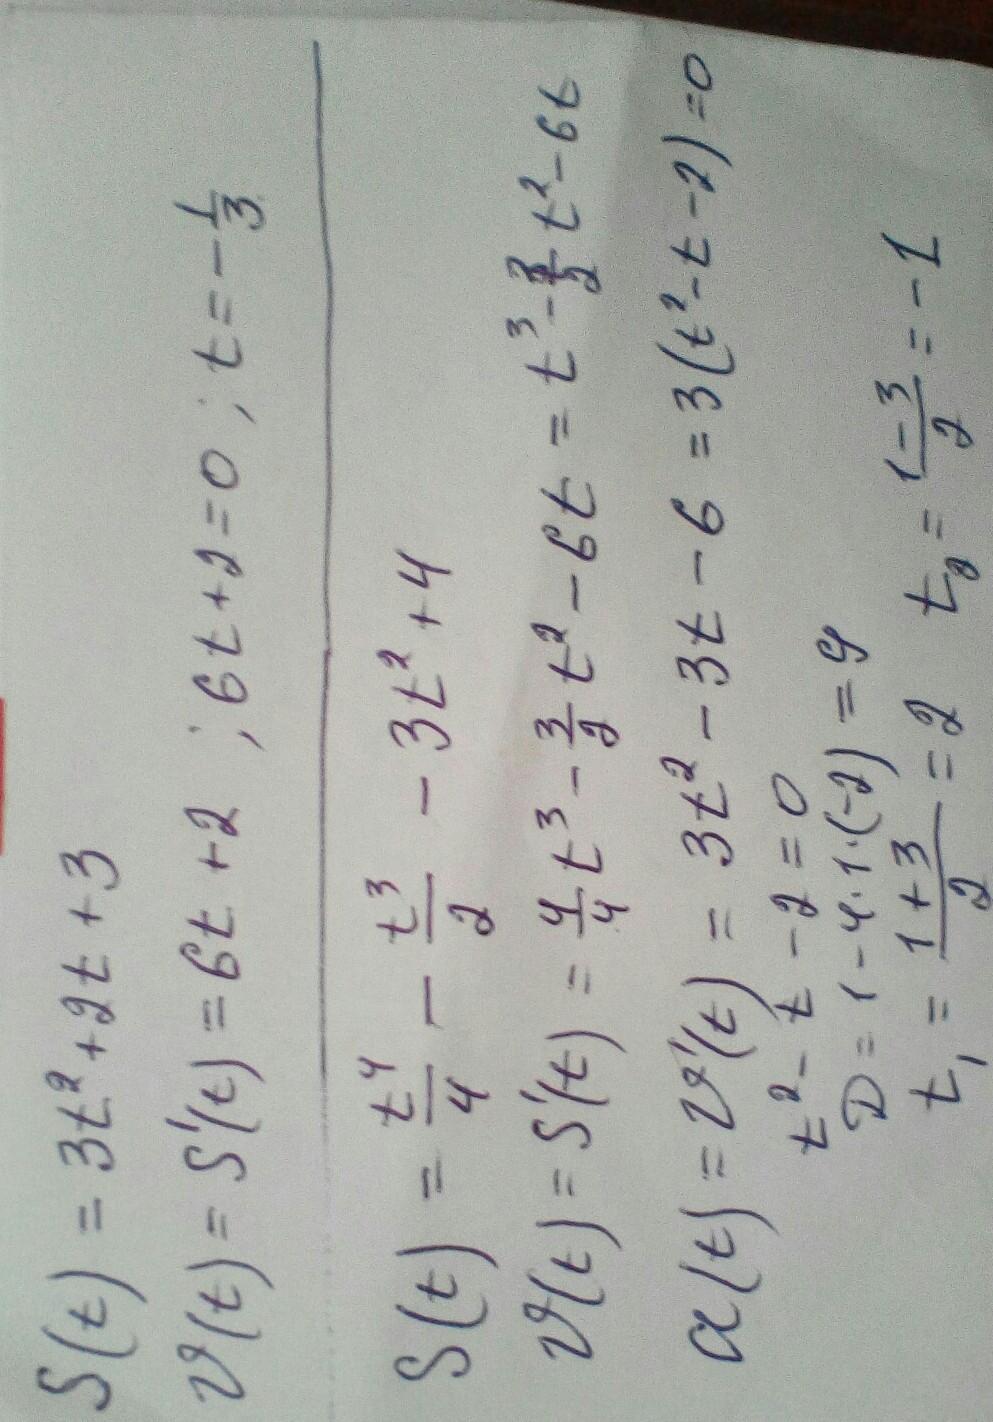 S(t) = 3t² + 2t + 3
v(t) = S'(t) = 6t + 2 ; 6t + 2 = 0 ; t = -1/3
S(t) = t⁴/4 - t³/2 - 3t² + 4
v(t) = S'(t) = 4/4 t³ - 3/2 t² - 6t = t³ - 3/2 t² - 6t
a(t) = v'(t) = 3t² - 3t - 6 = 3(t² - t - 2) = 0
t² - t - 2 = 0
D = 1 - 4·1·(-2) = 9
t₁ = (1+3)/2 = 2 t₂ = (1-3)/2 = -1